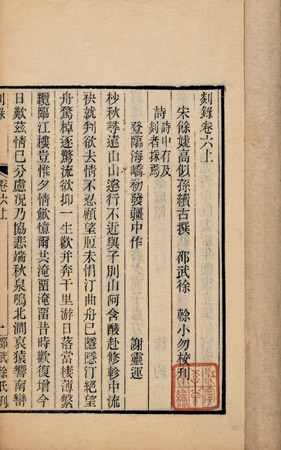 剡錄卷六上
宋餘姚高似孫續古撰 邵武徐 榦小勿校刊
詩 詩中有及剡者採焉
登臨海嶠初發疆中作 謝靈運
杪秋尋遠山山遠行不近與子別山阿含酸赴修軫中流
袂就判欲去情不忍顧望脰未悁汀曲舟已隱隱汀絕望
舟驚棹逐驚流欲抑一生歡并奔千里游日落當棲薄繫
纜臨江樓豈惟夕情歛憶爾共淹畱淹畱昔時歡復增今
日歎茲情已分慮況乃協悲端秋泉鳴北澗哀猿響南巒
剡錄 卷六上 一 邵武徐氏刊